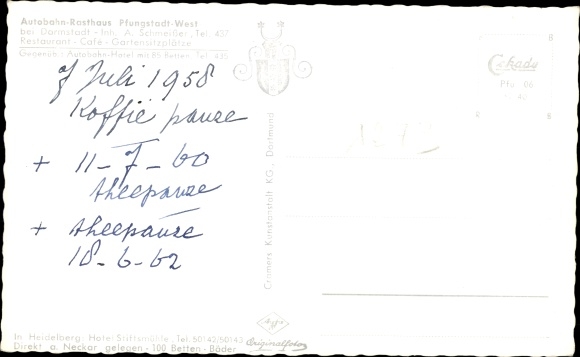 Autobahn-Rasthaus Pfungstadt-West
bei Darmstadt - Inh. A. Schmeißer, Tel. 437
Restaurant - Café - Gartensitzplätze
Gegenüb.: Autobahn-Hotel mit 85 Betten, Tel. 435
7 Juli 1958
Koffie pauze
+ 11-7-60
theepauze
+ theepauze
18-6-62
Cramers Kunstanstalt KG., Dortmund
Cekade
Pfu 06
In Heidelberg: Hotel Stiftsmühle, Tel. 50142/50143
Direkt a. Neckar gelegen - 100 Betten - Bäder
Originalfoto